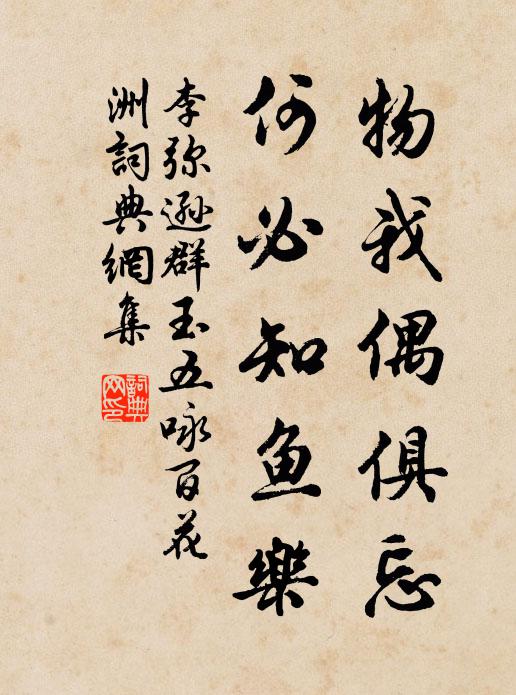 物我偶俱忘
何必知鱼樂
李弥遜群玉五咏百花
洲詞典網集
詞典网印